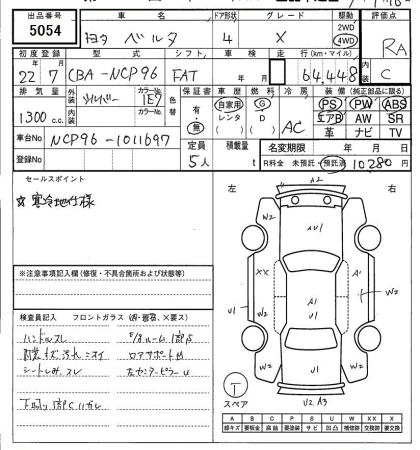 出品番号 車名 ドア形状 グレード 駆動 評価点
5054 トヨタ ベルタ 4 X 2WD 4WD RA
初度登録 型式 シフト 車検 走行(km・マイル) 内装
22年7月 CBA-NCP96 FAT 年 月 64,448 C
排気量 外装色 カラーNo. 色替 保証書 車歴 燃料 冷房 装備(純正部品に限る)
1300 c.c. シルバー 1E7 有・無 自家用 レンタ ( ) G D ( ) AC PS PW ABS
エアB AW SR
革 ナビ TV
車台No NCP96-1011697
登録No 定員 5人 積載量 t 名変期限 年 月 日
R料金 未預託・預託済 10280円
セールスポイント
☆寒冷地仕様
左 右
A2
W2 AU1 W2
XX A1 A1 W2
U1
W2 U1 W2
U2 A3
T
スペア
※注意事項記入欄(修復・不具合箇所および状態等)
検査員記入 フロントガラス
ハンドルスレ
内装キズ汚れ
シートしみ、スレ
コアサポートM
左センターピラーU
A B C P S U W X XX
線キズ 要板金 腐蝕 要塗装 サビ 凹凸 補修跡 要交換